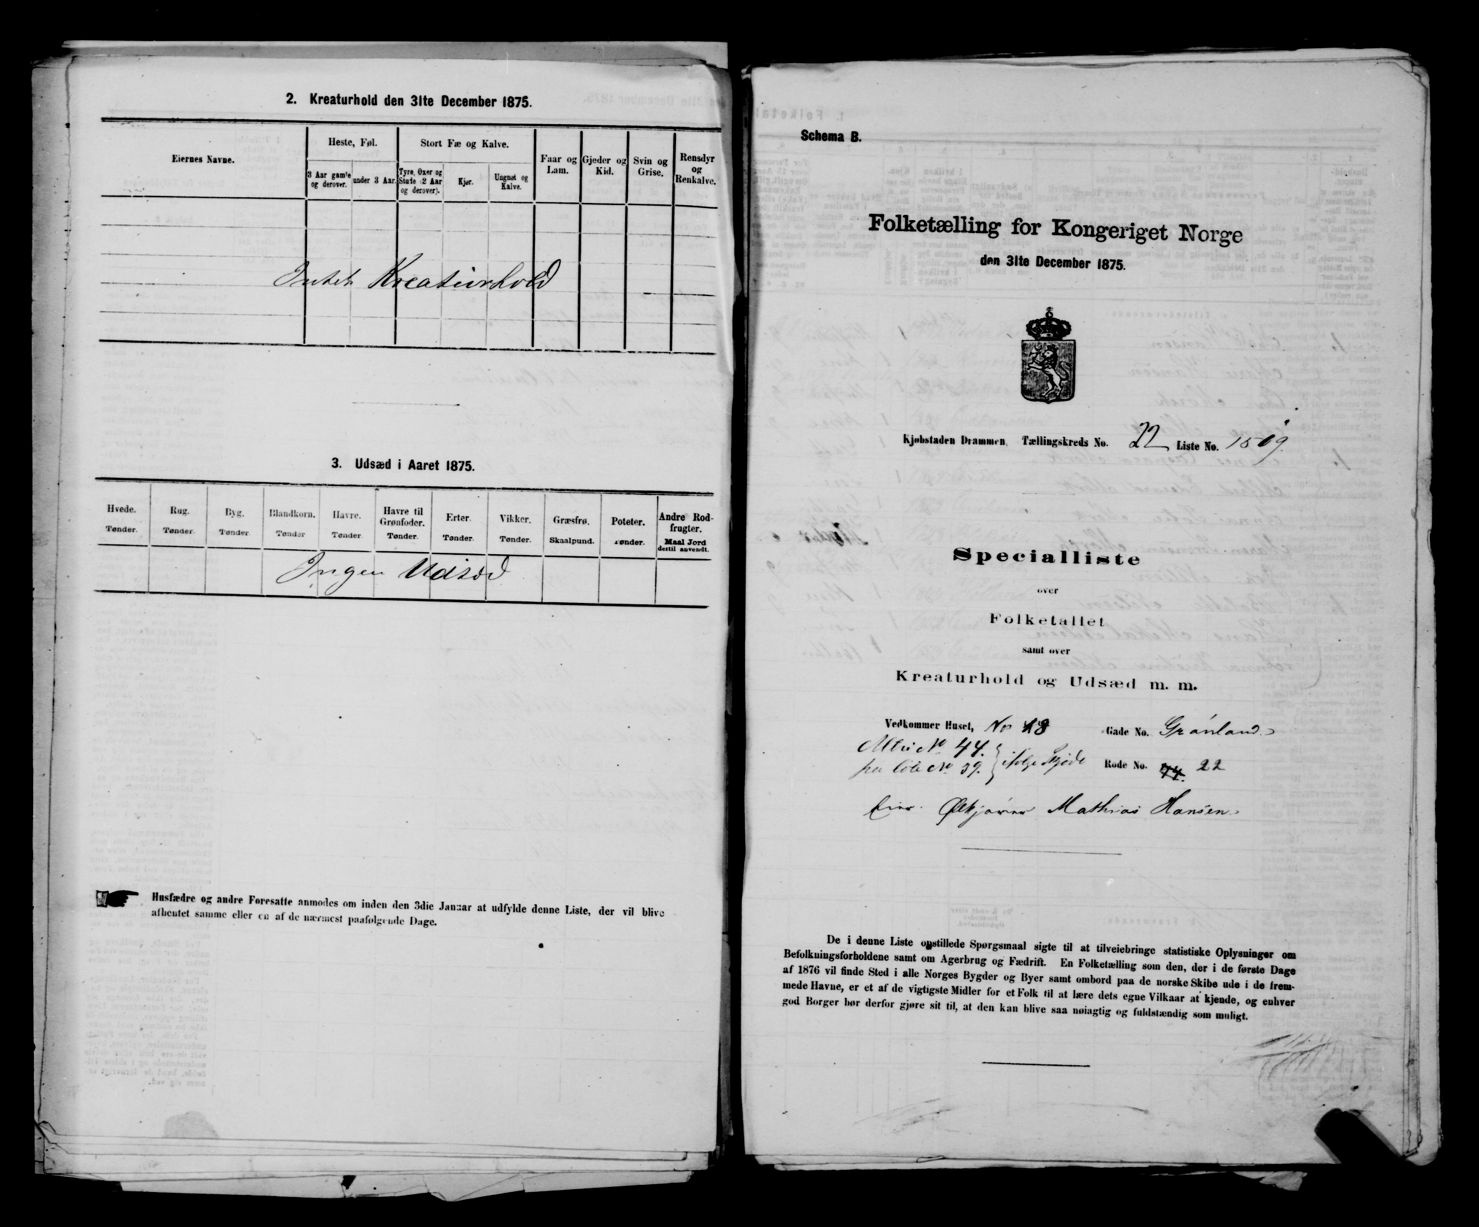 2. Kreaturhold den 31te December 1875.
Eiernes Navne.
Heste, Føl.
3 Aar gamle og derover.
under 3 Aar.
Stort Fæ og Kalve.
Tyre, Oxer og Stude (2 Aar og derover).
Kjør.
Ungnøt og Kalve.
Faar og Lam.
Gjeder og Kid.
Svin og Grise.
Rensdyr og Renkalve.
Intet Kreaturhold
3. Udsæd i Aaret 1875.
Hvede. Tønder.
Rug. Tønder.
Byg. Tønder.
Blandkorn. Tønder
Havre. Tønder
Havre til Grønfoder. Tønder.
Erter. Tønder.
Vikker. Tønder.
Græsfrø. Skaalpund.
Poteter. Tønder.
Andre Rodfrugter. Maal Jord dertil anvendt.
Ingen Udsæd
Husfædre og andre Foresatte anmodes om inden den 3die Januar at udfylde denne Liste, der vil blive
afhentet samme eller en af de nærmest paafølgende Dage.
Schema B.
Folketælling for Kongeriget Norge
den 31te December 1875.
Kjøbstaden Drammen. Tællingskreds No. 22 Liste No. 1509.
Specialliste
over
Folketallet
samt over
Kreaturhold og Udsæd m. m.
Vedkommer Huset, No 18 Gade No. Grønland
No 44.
No 39. ifølge Skjøde Rode No. 44. 22
Eier. Ølkjører Mathias Hansen
De i denne Liste opstillede Spørgsmaal sigte til at tilveiebringe statistiske Oplysninger om
Befolkningsforholdene samt om Agerbrug og Fædrift. En Folketælling som den, der i de første Dage
af 1876 vil finde Sted i alle Norges Bygder og Byer samt ombord paa de norske Skibe ude i de frem-
mede Havne, er et af de vigtigste Midler for et Folk til at lære dets egne Vilkaar at kjende, og enhver
god Borger bør derfor gjøre sit til, at den kan blive saa nøiagtig og fuldstændig som muligt.